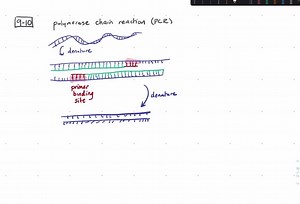 9-10 polymerase chain reaction (PCR)
denature
primer
binding
site
denature